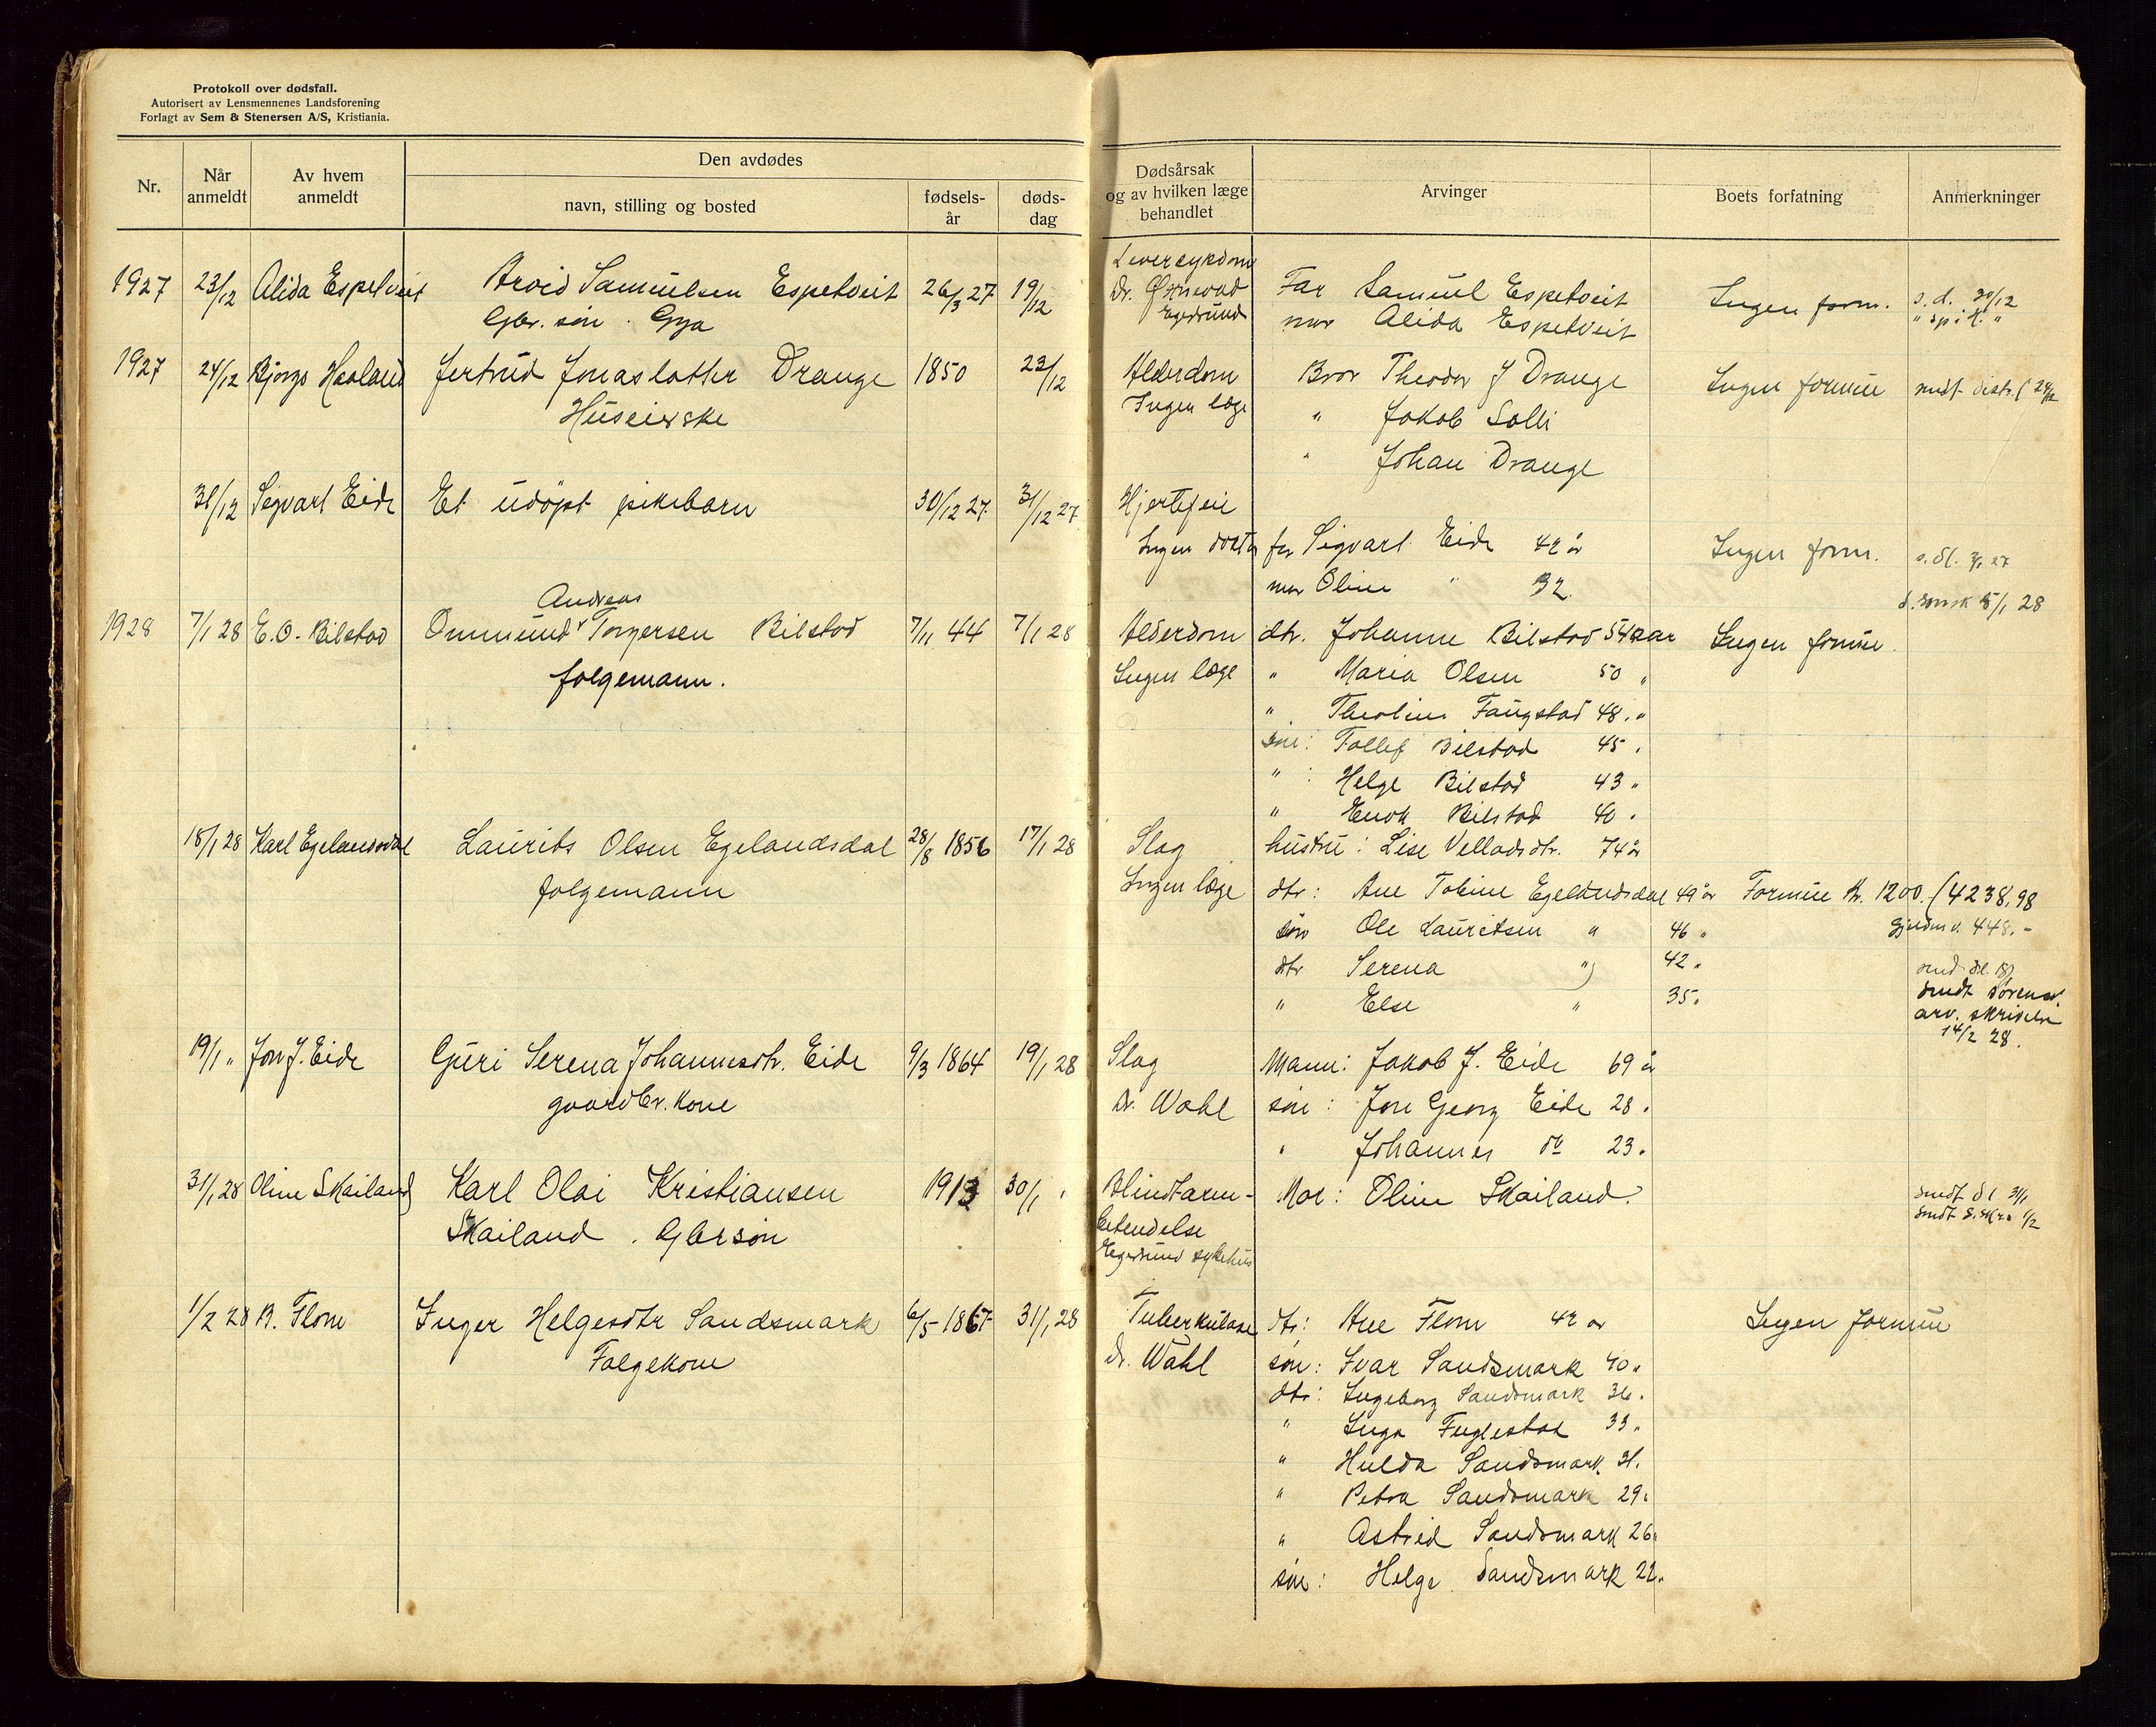 Protokoll over dødsfall.
Autorisert av Lensmennenes Landsforening
Forlagt av Sem & Stenersen A/S, Kristiania.
Nr.
Når anmeldt
Av hvem anmeldt
Den avdødes
navn, stilling og bosted
fødsels-år
døds-dag
Dødsårsak og av hvilken læge behandlet
Arvinger
Boets forfatning
Anmerkninger
1927 23/12 Alida Espetveit Arvid Samuelsen Espetveit 26/3 27 19/12 Leversykdom Far Samuel Espetveit Ingen form. s.d. 30/12
Gbr. søn. Gya Dr. Egersund mor Alida Espetveit
1927 24/12 Haaland Jertrud Jonasdotter Drange 1850 23/12 Alderdom Bror Theodor J Drange Ingen formue
Huseierske Ingen læge " Jakob Solli
" Johan Drange
31/12 Segvart Eide Et udøpt pikebarn 30/12 27. 31/12 27 Hjertefeil
Ingen doktor far Sigvart Eide 42 år Ingen form.
mor Oline " 32.
5/1 28
Andreas
1928 7/1 28 E.O. Bilstad Ommund Torgersen Bilstad 7/11 44 7/1 28 Alderdom dtr. Johanne Bilstad 54 aar Ingen formue.
folgemann. Ingen læge " Maria Olsen 50 "
" Theoline Faugstad 48. "
søn: Tollef Bilstad 45 "
" : Helge Bilstad 43 "
" Enok Bilstad 40 "
18/1 28 Karl Egelandsdal Laurits Olsen Egelandsdal 28/8 1856 17/1 28 Slag hustru: Lise Velladsdtr. 74 år
folgemann Ingen læge dtr: Ane Tobine Egelandsdal 49 år Formue kr. 1200. (4238,98
søn Ole Lauritsen " 46 " 448.-
dtr Serena " 42 "
" Else " 35 "
sendt sørensk.
arv. skrivelse
14/2 28.
19/1 " Jon J. Eide Guri Serena Johannesdtr. Eide 9/3 1864 19/1 28 Slag Mann: Jakob J. Eide 69 år
gaardbr. kone Dr. Wahl søn: Jon Georg Eide 28 "
" Johannes do 23 "
31/1 28 Oline Skailand Karl Olai Kristiansen 1913 30/1 " Blindtarm- Mor: Oline Skailand. sendt dl 31/1
Skailand. Gbrsøn betendelse sendt s.skr. 1/2
Egersund sykehus
1/2 28 B. Flom Inger Helgesdtr Sandsmark 6/5 1867 31/1 28 Tuberkulose dtr: Ane Flom 42 år Ingen formue
Folgekone dr. Wahl søn: Ivar Sandsmark 40 "
dtr: Ingeborg Sandsmark 36 "
" Inga Fuglestad 33 "
" Hulda Sandsmark 31 "
" Petra Sandsmark 29 "
" Astrid Sandsmark 26 "
søn: Helge Sandsmark 22 "